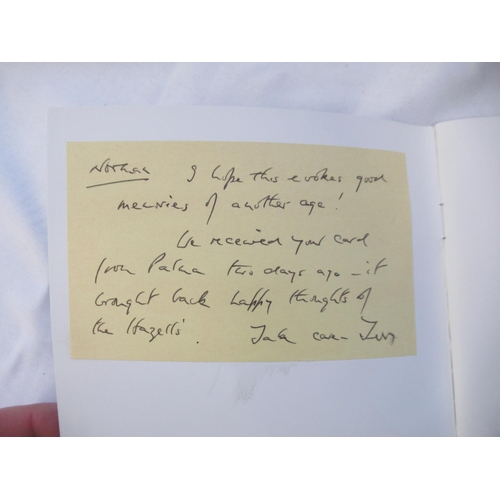 Norman I hope this evokes good
memories of another age!
We received your card
from Palma two days ago - it
brought back happy thoughts of
the Hazells. Take care -